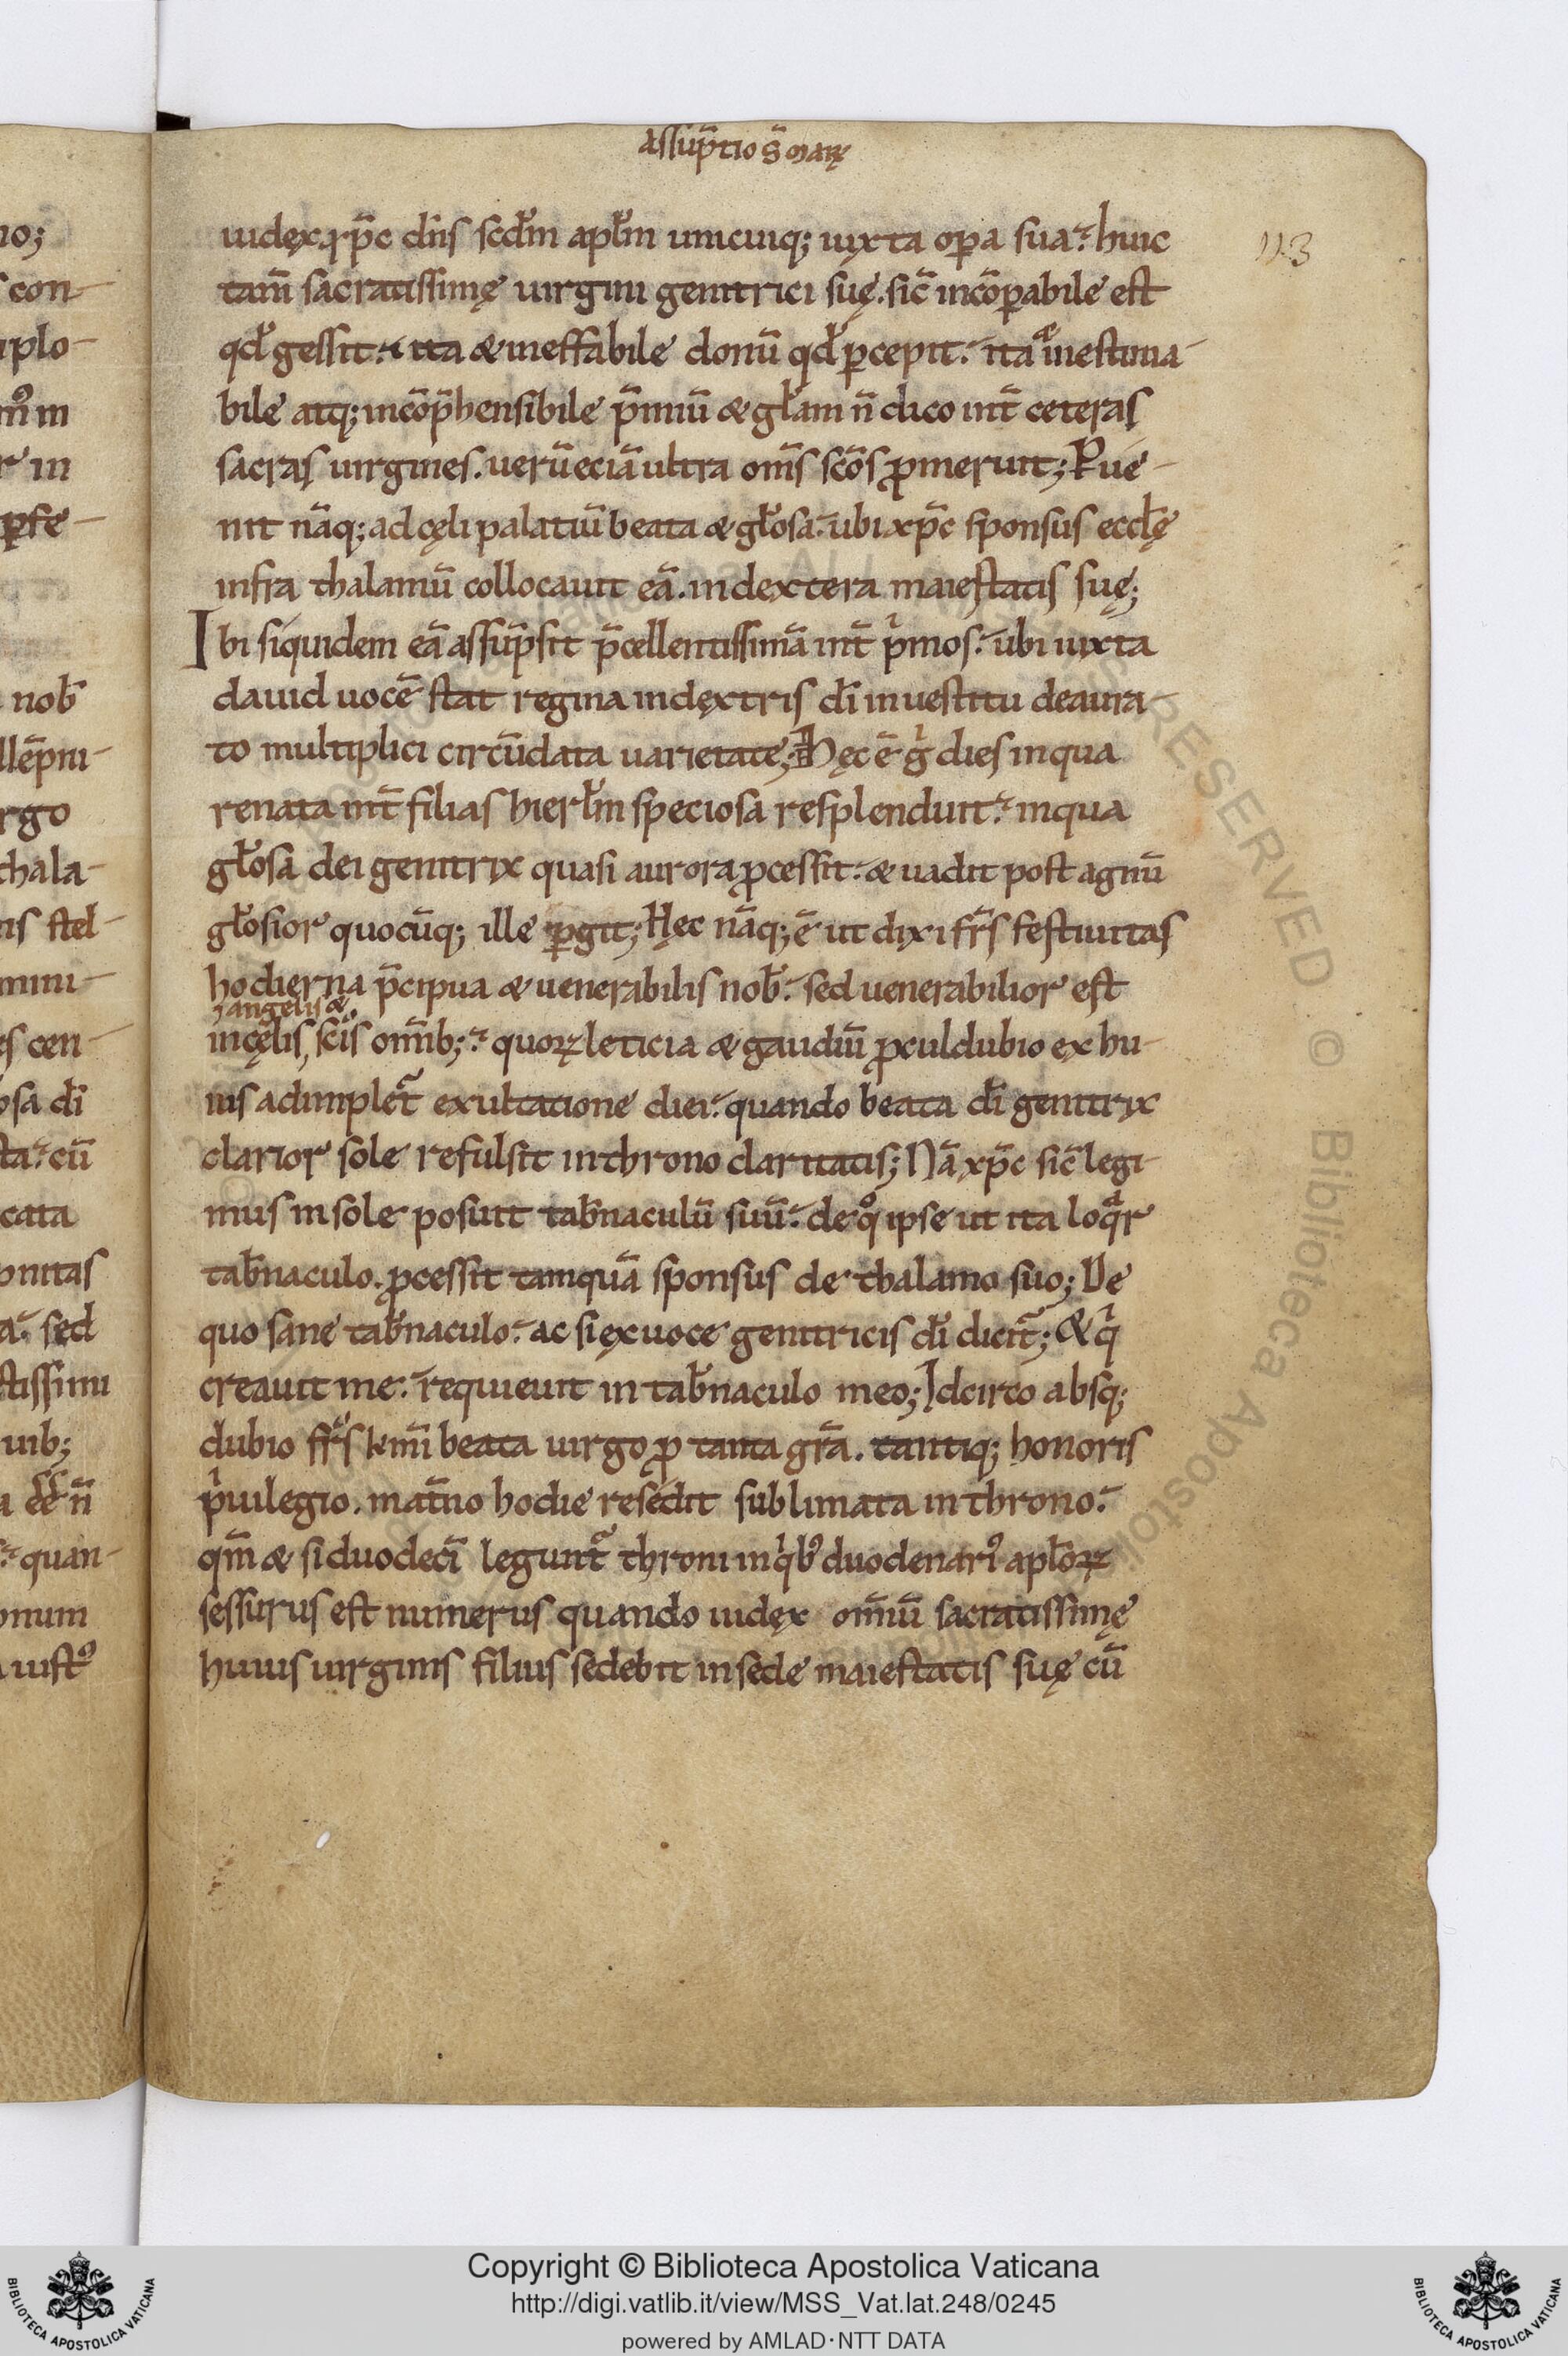 assūp̄tio s̄ marę
uidęx xp̄c dn̄s scd̄m apl̄m unicuiq; iuxta op̱a sua. huic
113
tam̄ sacratissimę uirgini genitrici suę. sic̄ incōp̱abile est
qd̄ gessit. ita & ineffabile donū qd̄ p̱cepit. ita & inestima-
bile atq; incōp̄hensibile p̄miū & gl̄am n̄ dico int̄ ceteras
sacras uirgines. uerū eciā ultra om̄s sc̄os ꝓmeruit; P̱ue-
nit nāq; ad cęli palatiū beata & gl̄osa. ubi xp̄c sponsus eccl̄ę
infra thalamū collocauit eā. in dextera maiestatis suę;
Ibi siquidem eā assūp̄sit p̄cellentissimā int̄ p̍mos. ubi iuxta
dauid uocē stat regina in dęxtris dī in uestitu deaura-
to multiplici circūdata uarietate; Hęc ē g̍ dies in qua
renata int̄ filias hierl̄m speciosa resplenduit. in qua
gl̄osa dei genitrix quasi aurora ꝓcessit. & uadit post agnū
gl̄osior quocūq; ille p̱git; Hęc nāq; ē ut dixi fr̄s festiuitas
hodierna p̄cipua & uenerabilis nob̄. sed uenerabilior est
angelis &
in cęlis, sc̄is om̄ib;. quoꝝ leticia & gaudiū ꝓculdubio ex hu-
ius adimplet̄ exultatione diei. quando beata dī genitrix
clarior sole refulsit in throno claritatis; Nā xp̄c sic̄ legi-
mus in sole posuit tab̄naculū suū. de qͦ ipse ut ita loqͣr
tab̄naculo. ꝓcessit tamquā sponsus de thalamo suo; De
quo sane tab̄naculo. ac si ęx uoce genitricis dī dicit̄; & q̍
creauit me. requieuit in tab̄naculo meo; Idcirco absq;
dubio fr̄s km̄i beata uirgo ꝓ tanta gr̄a. tantiq; honoris
p̍uilegio. mat̄no hodie resedit sublimata in throno.
qm̄ & si duodecī legunt̄ throni in q̍bꝰ duodenariꝰ apl̄oꝝ
sessurus est numerus quando iudęx om̄iū sacratissimę
huius uirginis filius sedebit in sede maiestatis suę cū
Copyright © Biblioteca Apostolica Vaticana
http://digi.vatlib.it/view/MSS_Vat.lat.248/0245
powered by AMLAD·NTT DATA